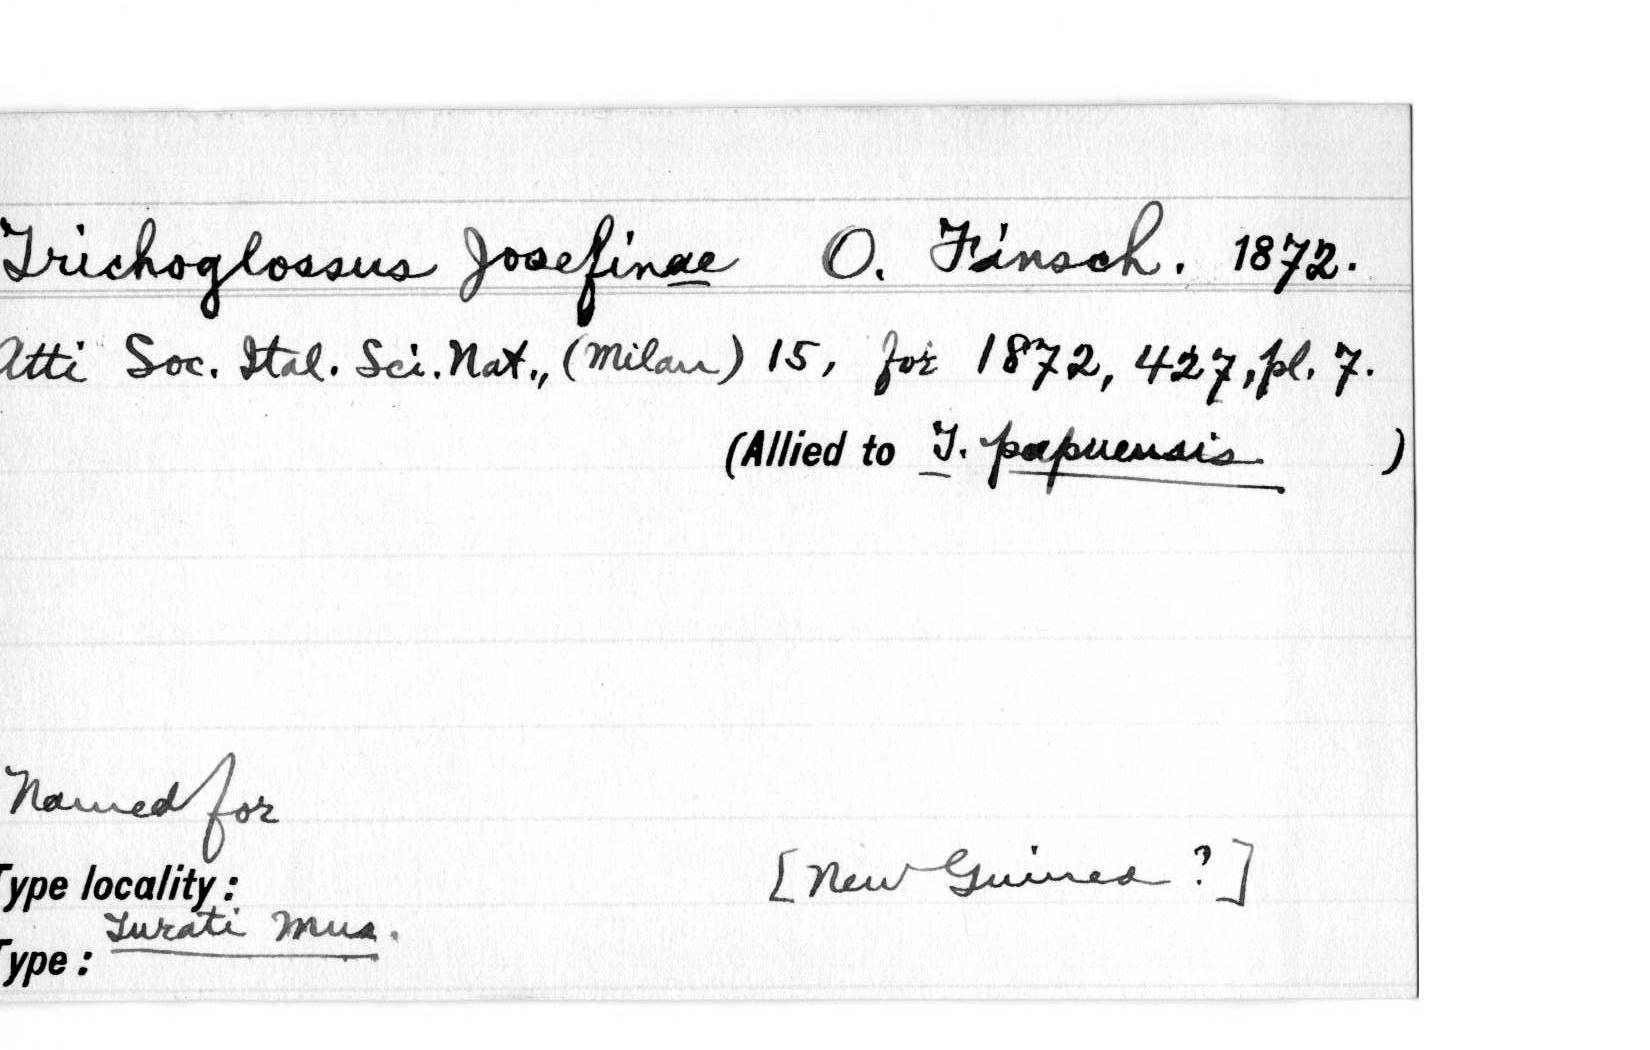 Trichoglossus Josefinae O. Finsch. 1872.
Atti Soc. Ital. Sci. Nat., (Milan) 15, for 1872, 427, pl. 7.
(Allied to T. papuensis )
Named for
Type locality: [New Guinea ?]
Turati Mus.
Type: